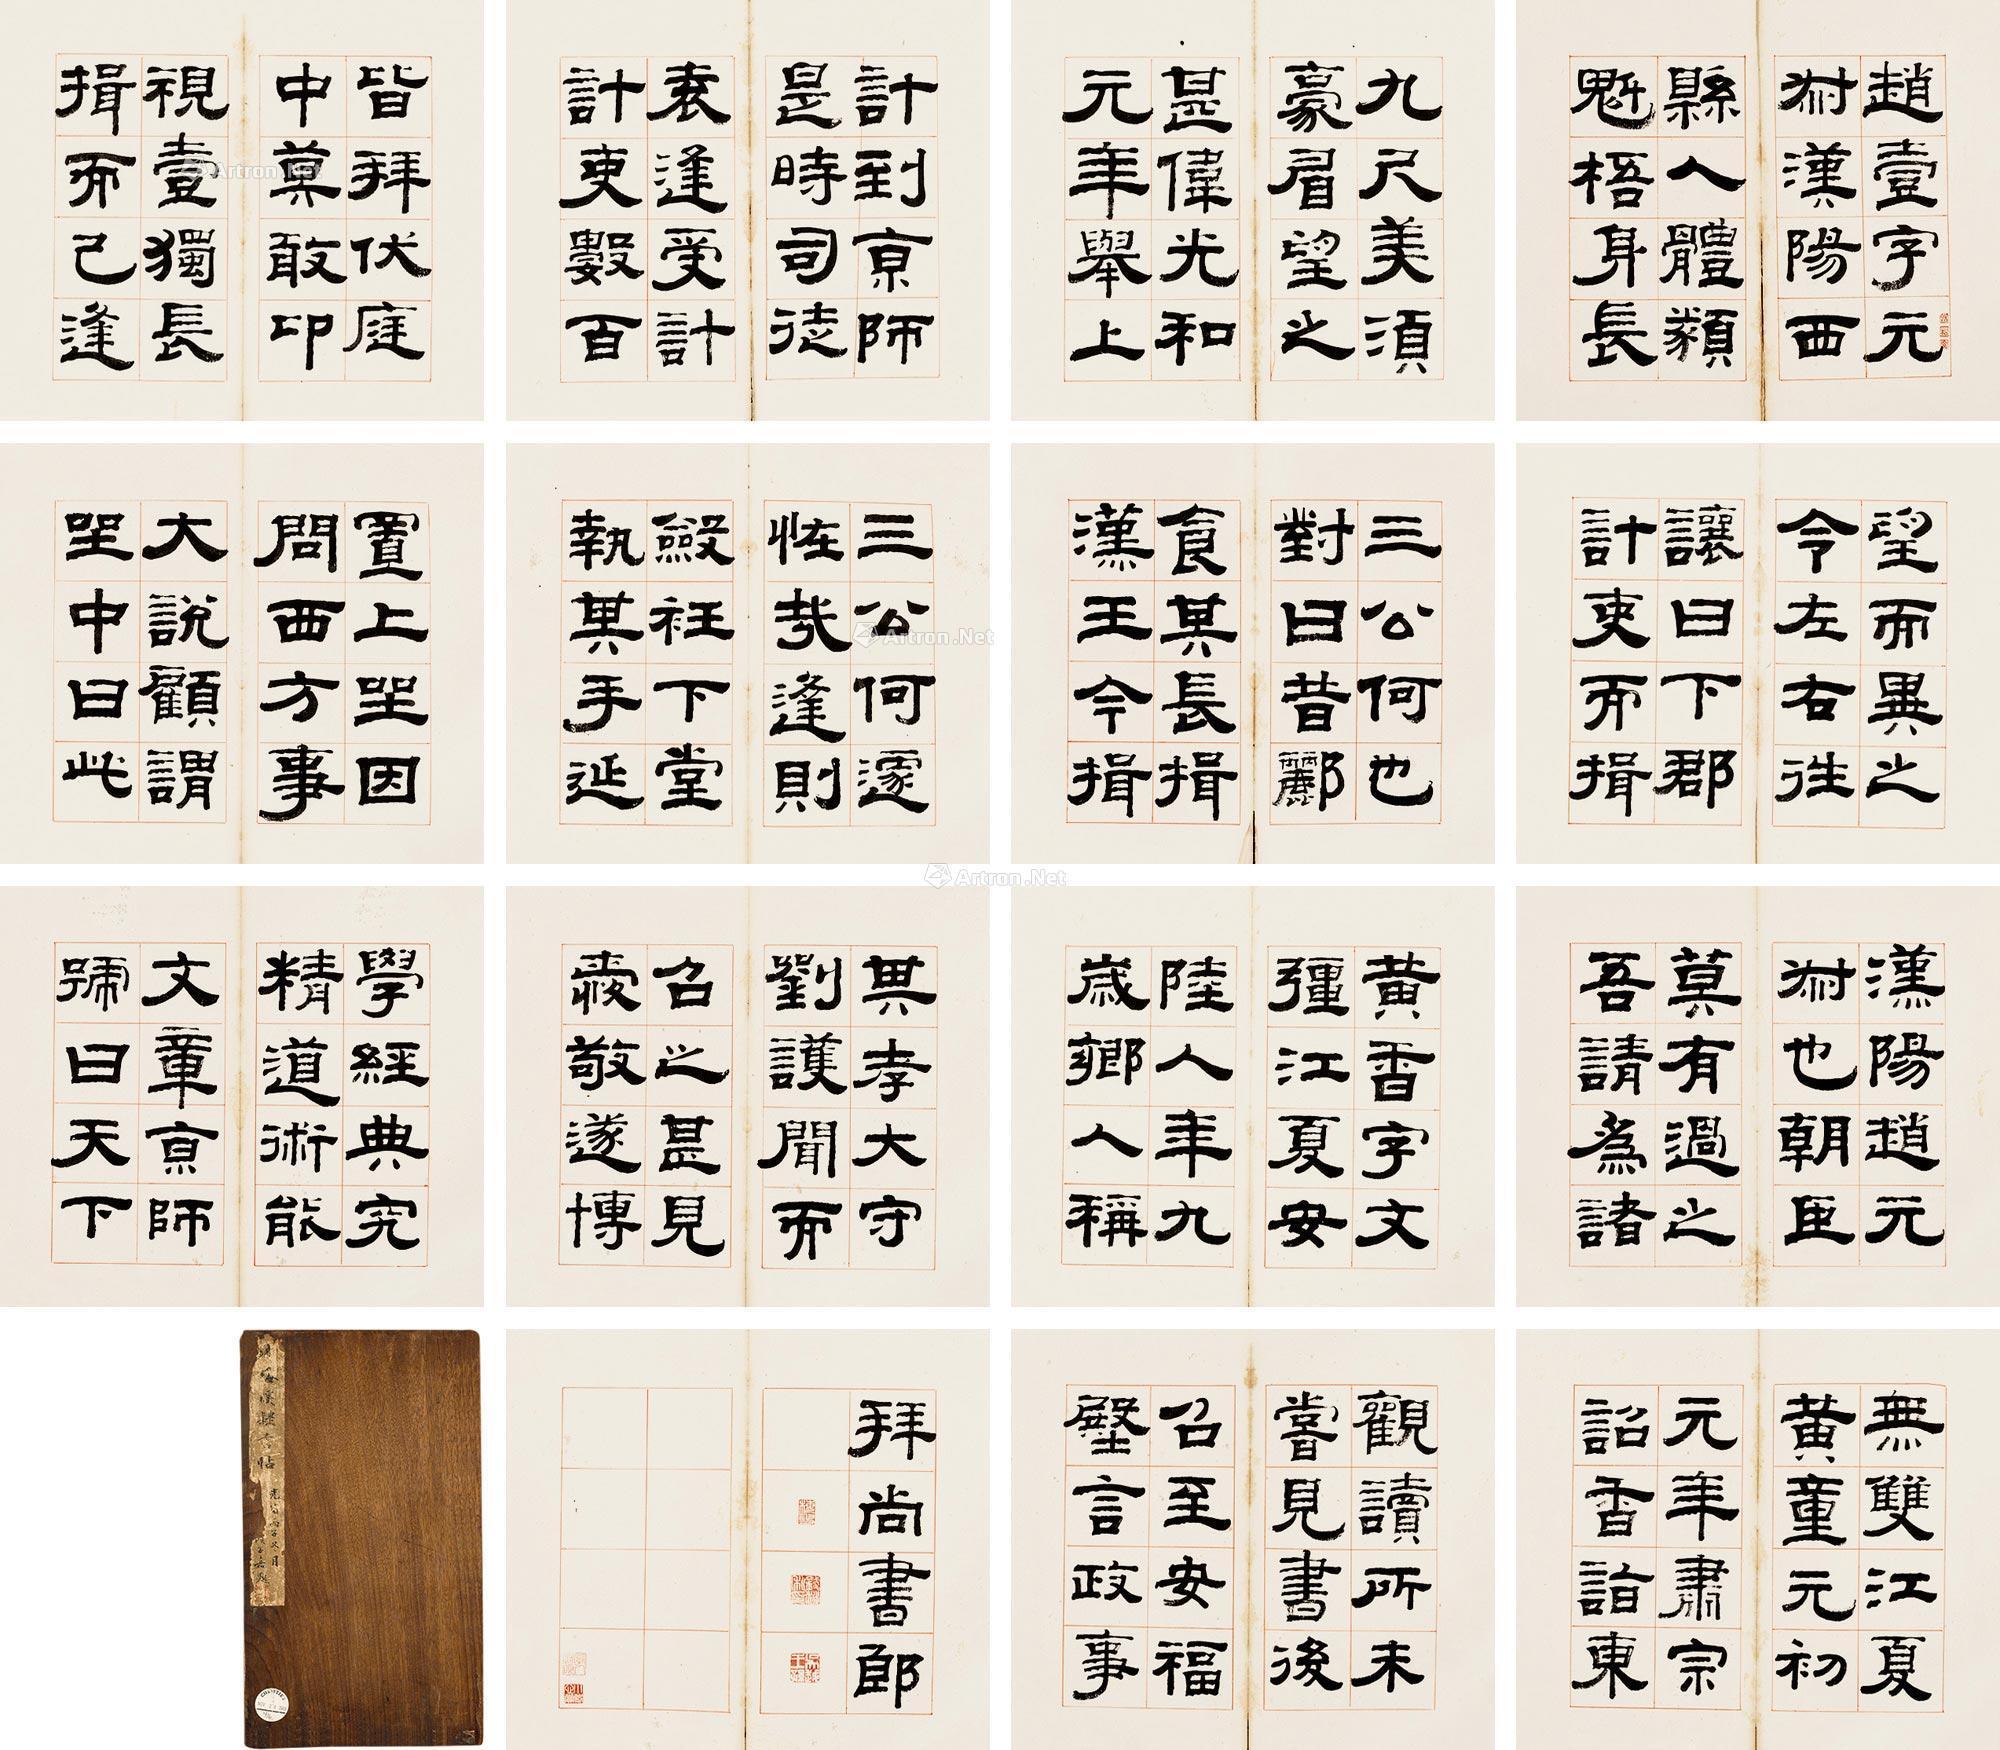 趙壹字元
叔漢陽西
縣人體䫉
魁梧身長
九尺美須
豪眉望之
甚偉光和
元年舉上
計到京師
是時司徒
袁逢受計
計吏數百
皆拜伏庭
中莫敢卬
視壹獨長
揖而已逢
望而異之
令左右往
讓曰下郡
計吏而揖
三公何也
對曰昔酈
食其長揖
漢王今揖
三公何遽
怪哉逢則
斂衽下堂
執其手延
置上坐因
問西方事
大說顧謂
坐中曰此
漢陽趙元
叔也朝臣
莫有過之
吾請為諸
黃香字文
彊江夏安
陸人年九
歲鄉人稱
其孝大守
劉護聞而
召之甚見
愛敬遂博
學經典究
精道術能
文章京師
號曰天下
無雙江夏
黃童元初
元年肅宗
詔香詣東
觀讀所未
嘗見書後
召至安福
壂言政事
拜尚書郎
Artron.Net
Artron.Net
Artron.Net